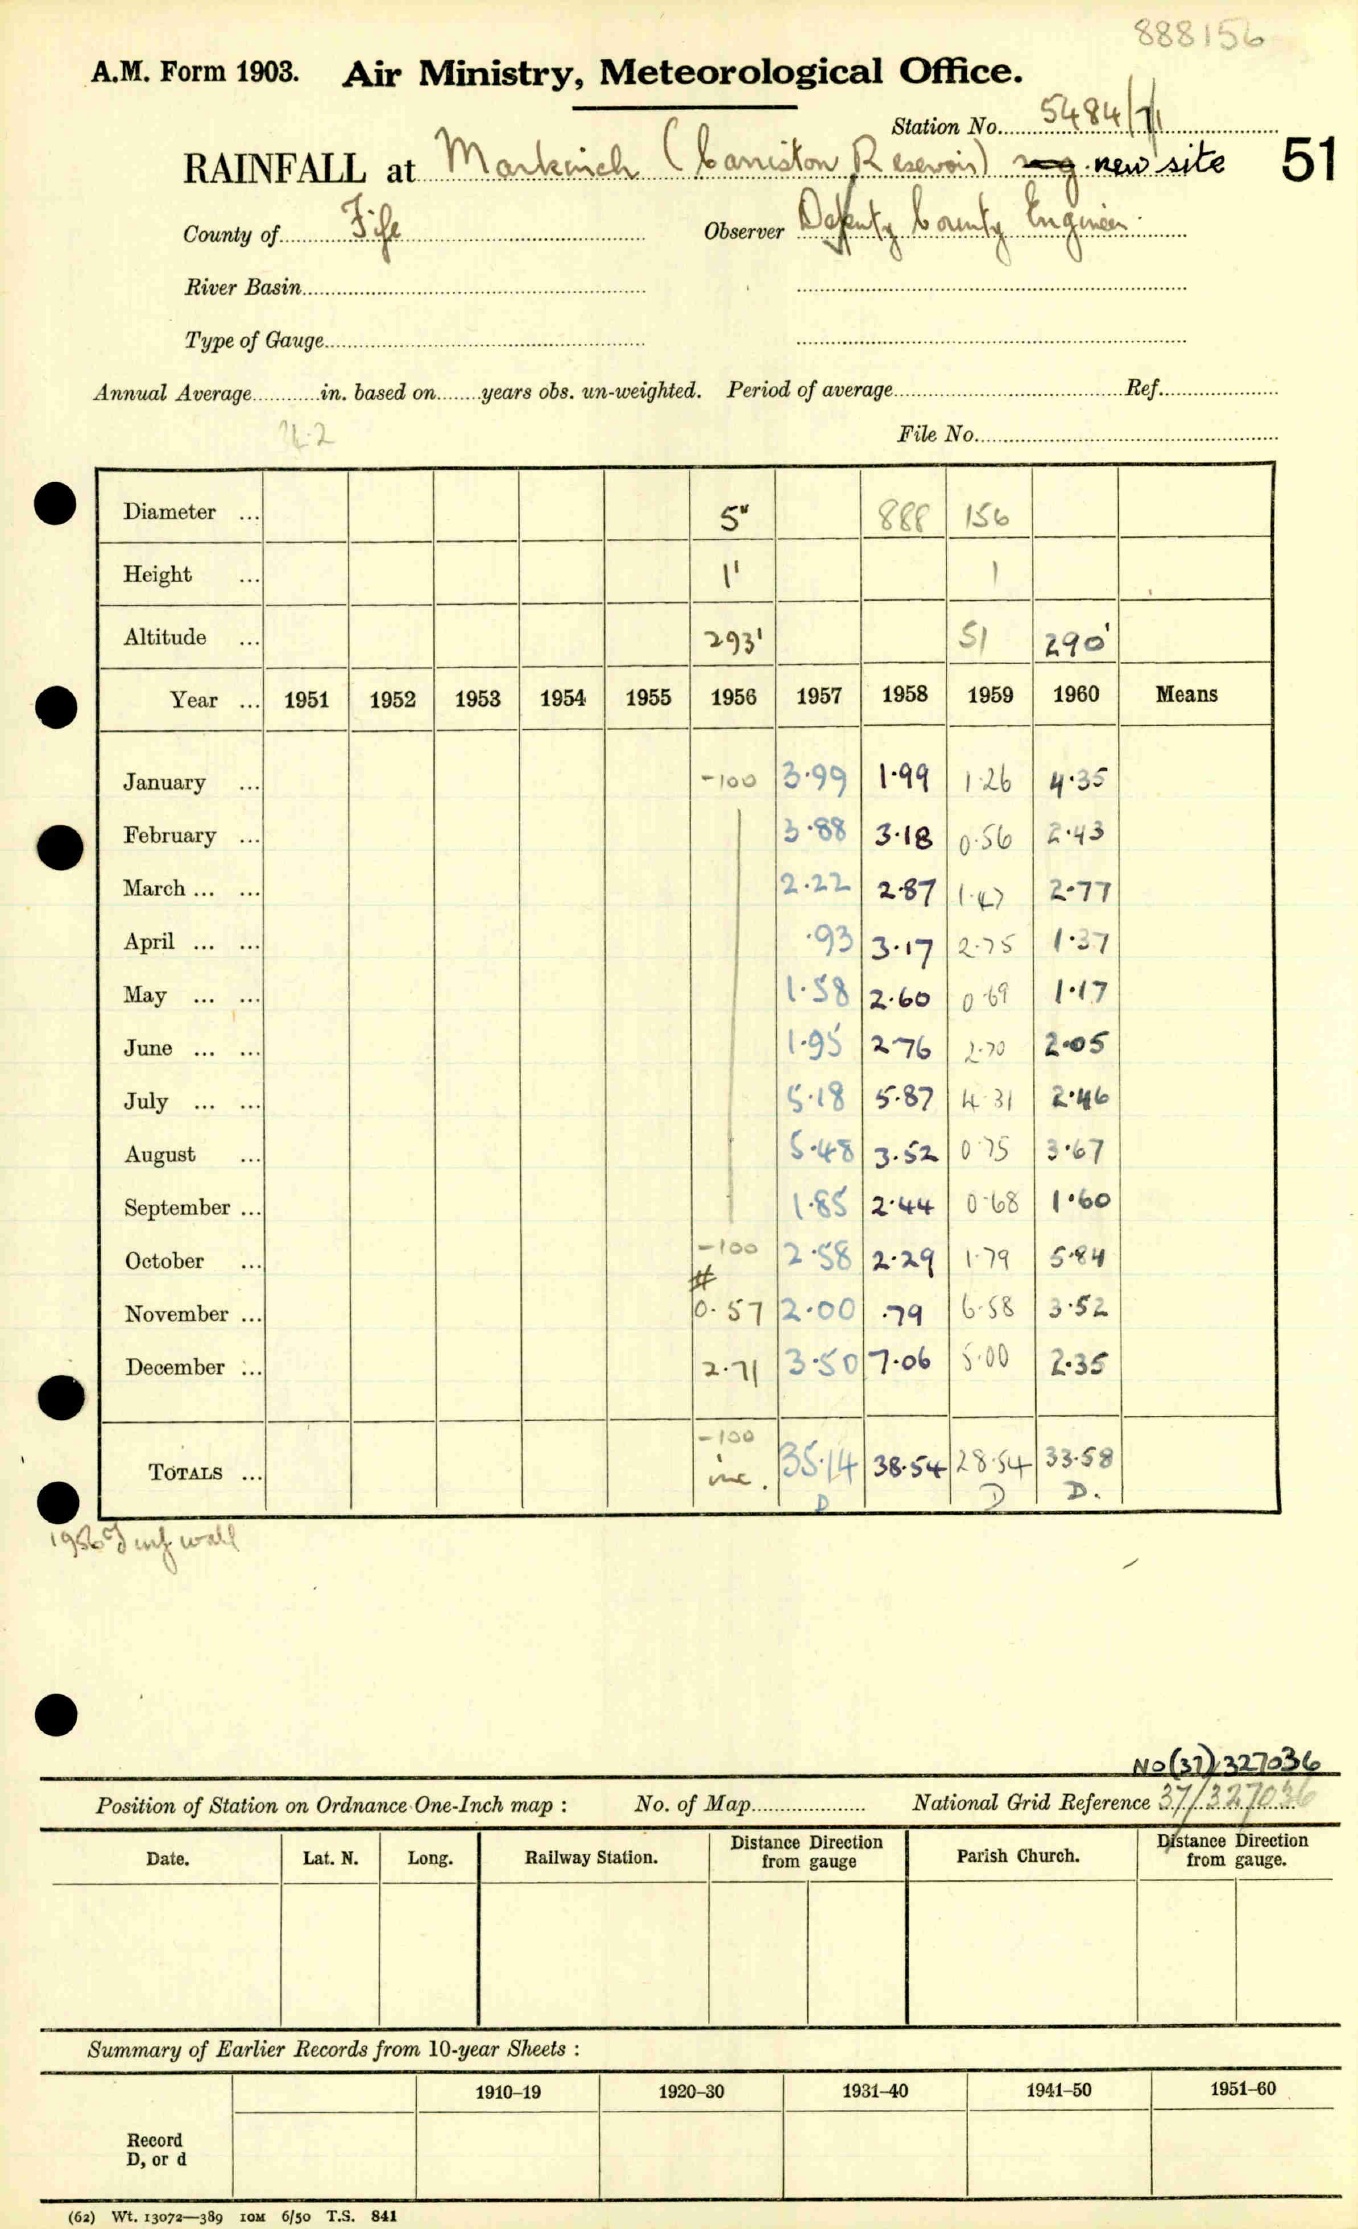 888156
A.M. Form 1903. Air Ministry, Meteorological Office.
Station No. 5484/7/1
RAINFALL at Markinch (Carriston Reservoir) new site 51
County of Fife Observer Deputy County Engineer.
River Basin
Type of Gauge
Annual Average in. based on years obs. un-weighted. Period of average Ref.
File No.
Diameter ... 5" 888 156
Height ... 1' 1
Altitude ... 293' 51 290'
Year ... 1951 1952 1953 1954 1955 1956 1957 1958 1959 1960 Means
January ... -100 3.99 1.99 1.26 4.35
February ... 3.88 3.18 0.56 2.43
March ... ... 2.22 2.87 1.47 2.77
April ... ... .93 3.17 2.75 1.37
May ... ... 1.58 2.60 0.69 1.17
June ... ... 1.95 2.76 2.70 2.05
July ... ... 5.18 5.87 4.31 2.46
August ... 5.48 3.52 0.75 3.67
September ... 1.85 2.44 0.68 1.60
October ... -100 2.58 2.29 1.79 5.84
#
November ... 0.57 2.00 .79 6.58 3.52
December ... 2.71 3.50 7.06 5.00 2.35
-100
TOTALS ... inc. 35.14 38.54 28.54 33.58
D D D.
1956 Turf wall
NO(37)327036
Position of Station on Ordnance One-Inch map : No. of Map National Grid Reference 37/327036
Date. Lat. N. Long. Railway Station. Distance Direction from gauge Parish Church. Distance Direction from gauge.
Summary of Earlier Records from 10-year Sheets :
1910–19 1920–30 1931–40 1941–50 1951–60
Record
D, or d
(62) Wt. 13072—389 10M 6/50 T.S. 841